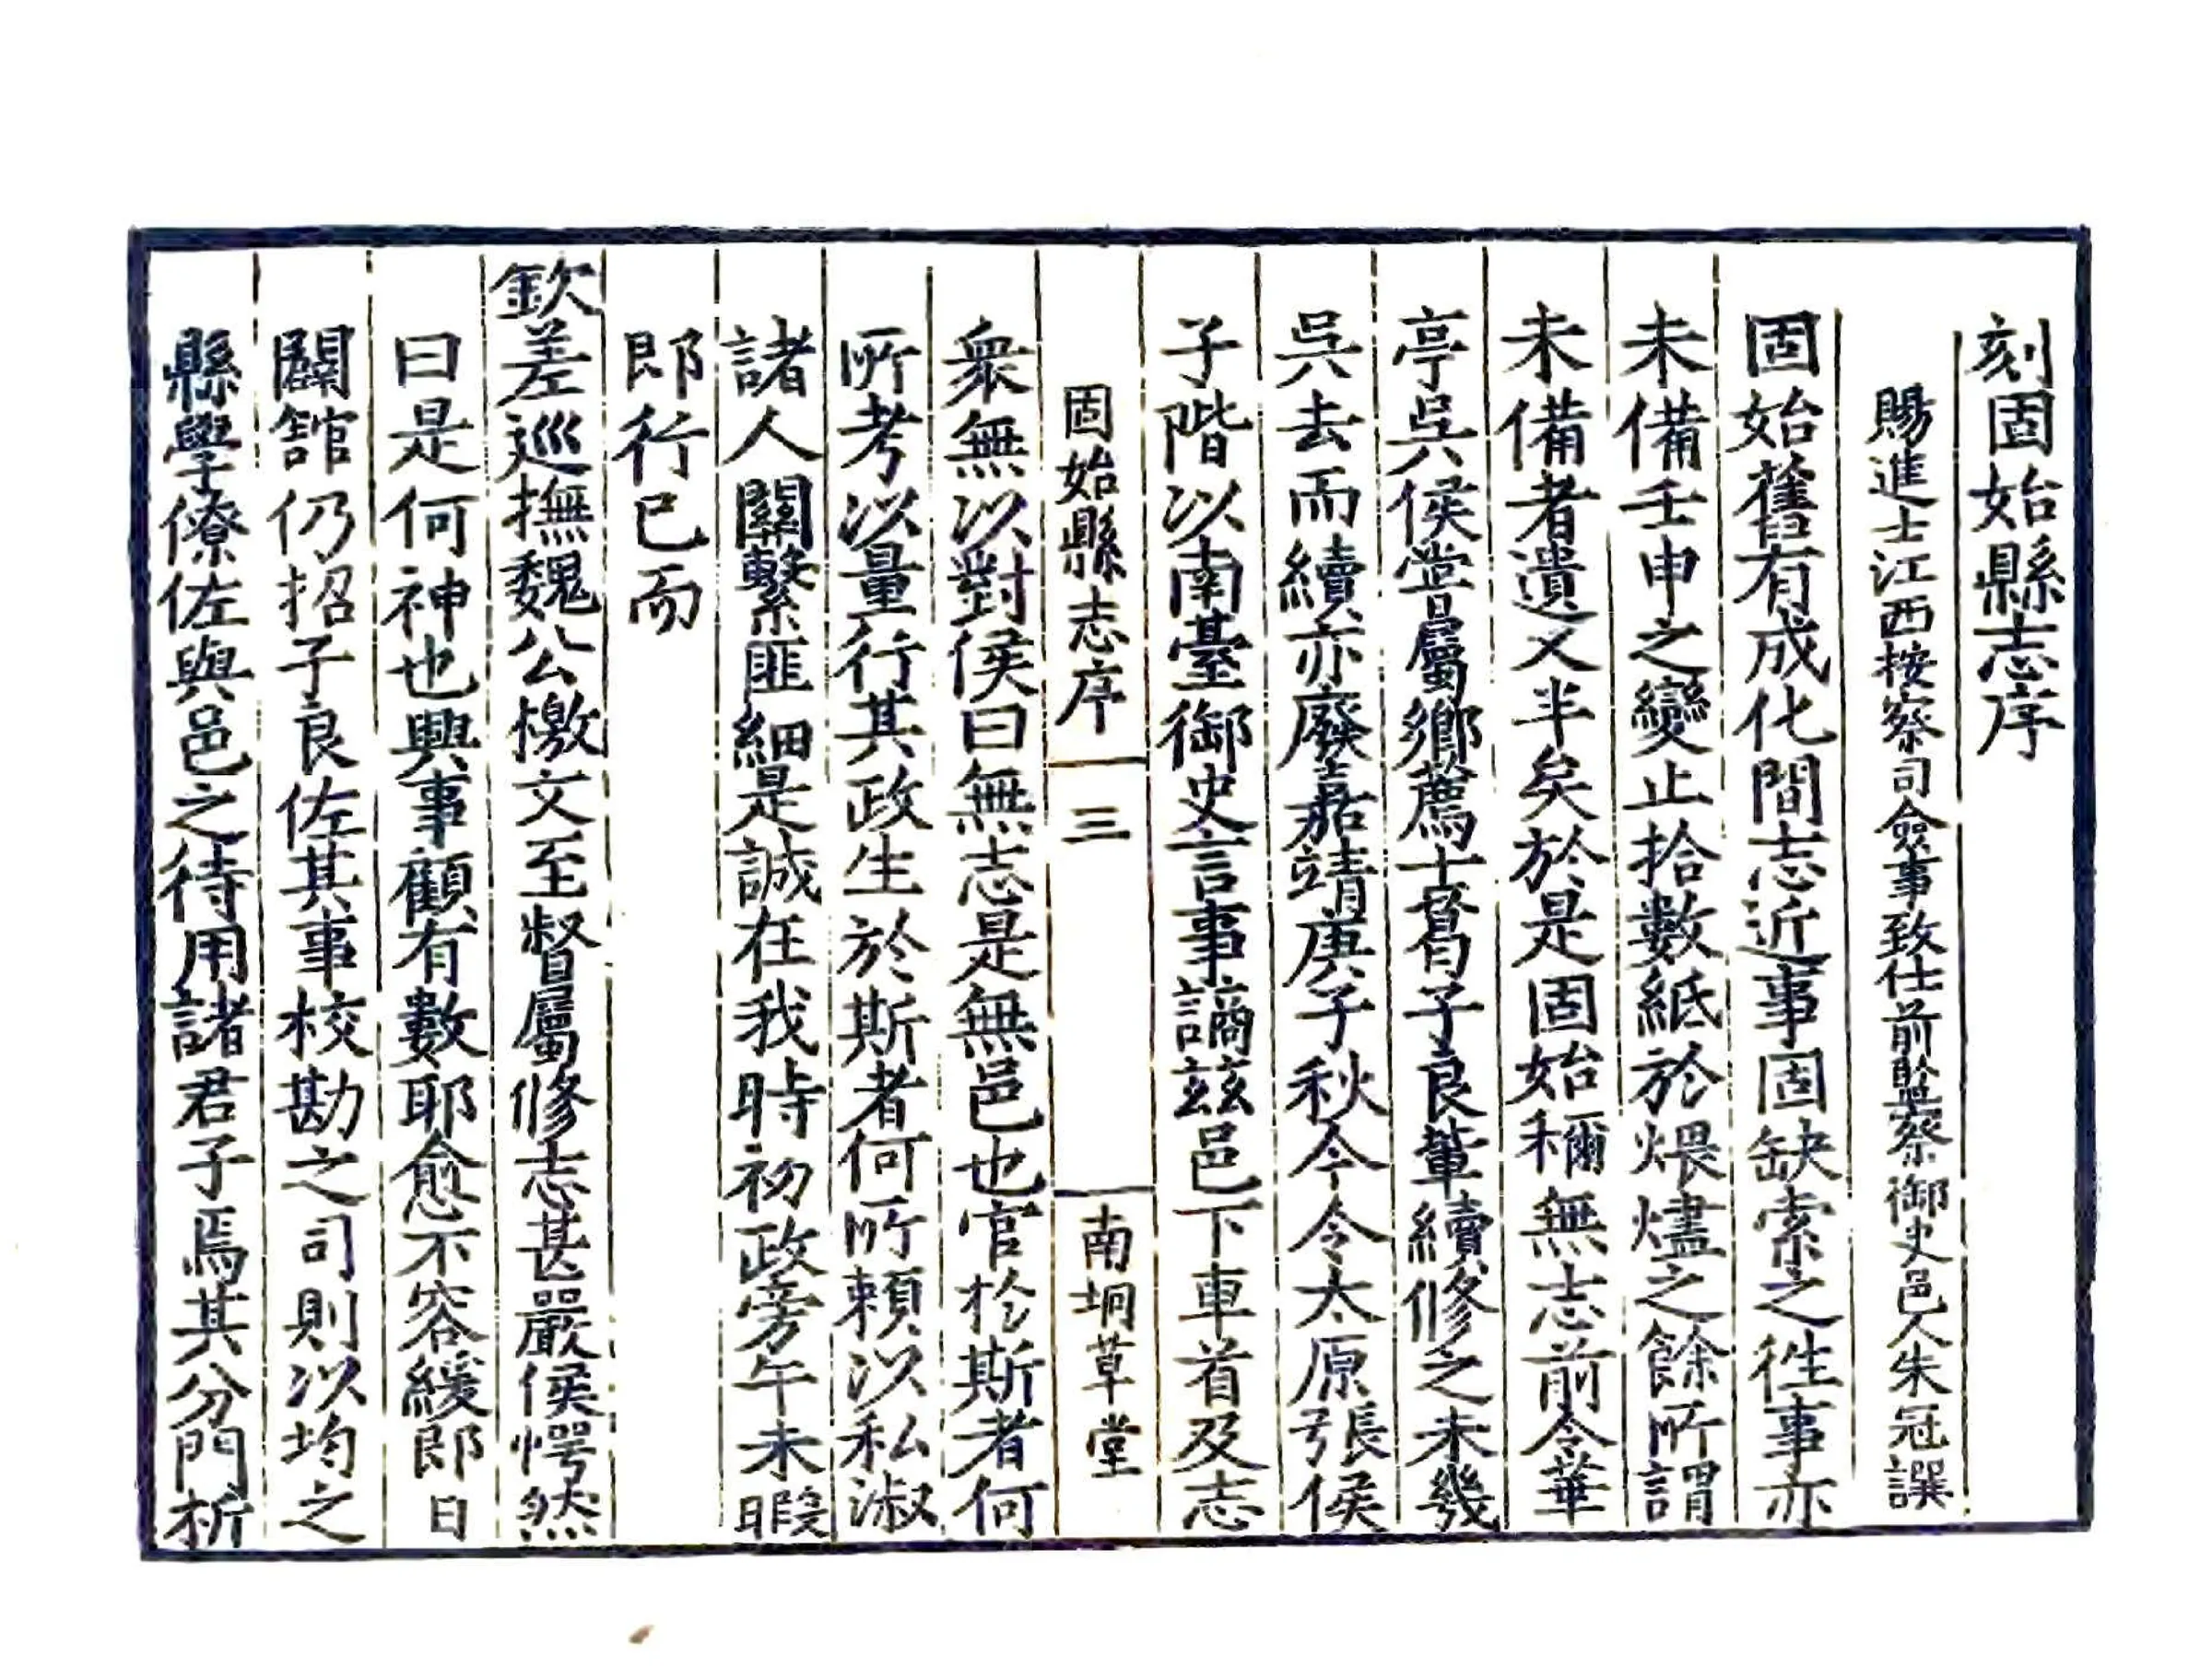 刻固始縣志序
賜進士江西按察司僉事致仕前監察御史邑人朱冠譔
固始舊有成化間志近事固缺索之徃事亦
未備壬申之變止拾數紙於煨燼之餘所謂
未備者遺又半矣於是固始稱無志前令華
亭吳侯嘗屬鄉薦士胥子良輩續修之未幾
吳去而續亦廢嘉靖庚子秋今令太原張侯
子階以南臺御史言事謫茲邑下車首及志
固始縣志序 三 南坰草堂
衆無以對侯曰無志是無邑也官於斯者何
所考以量行其政生於斯者何所賴以私淑
諸人關繫匪細是誠在我時初政旁午未暇
即行已而
欽差巡撫魏公檄文至督屬修志甚嚴侯愕然
曰是何神也興事顧有數耶愈不容緩即日
闢舘仍招子良佐其事校勘之司則以均之
縣學僚佐與邑之待用諸君子焉其分門析